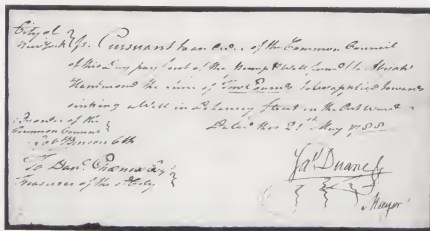 City of
New York } ss. Pursuant to an order of the Common Council
of this Day pay out of the Pump & Well fund to Abijah
Hammond the sum of Pounds to be applied towards
sinking a Well in Delancy Street in the Out Ward
Dated this 21st May 1788
By order of the
Common Council
Robt Benson Clk
To Danl Phoenix Esqr
Treasurer of the sd City
Jas Duane
Mayor